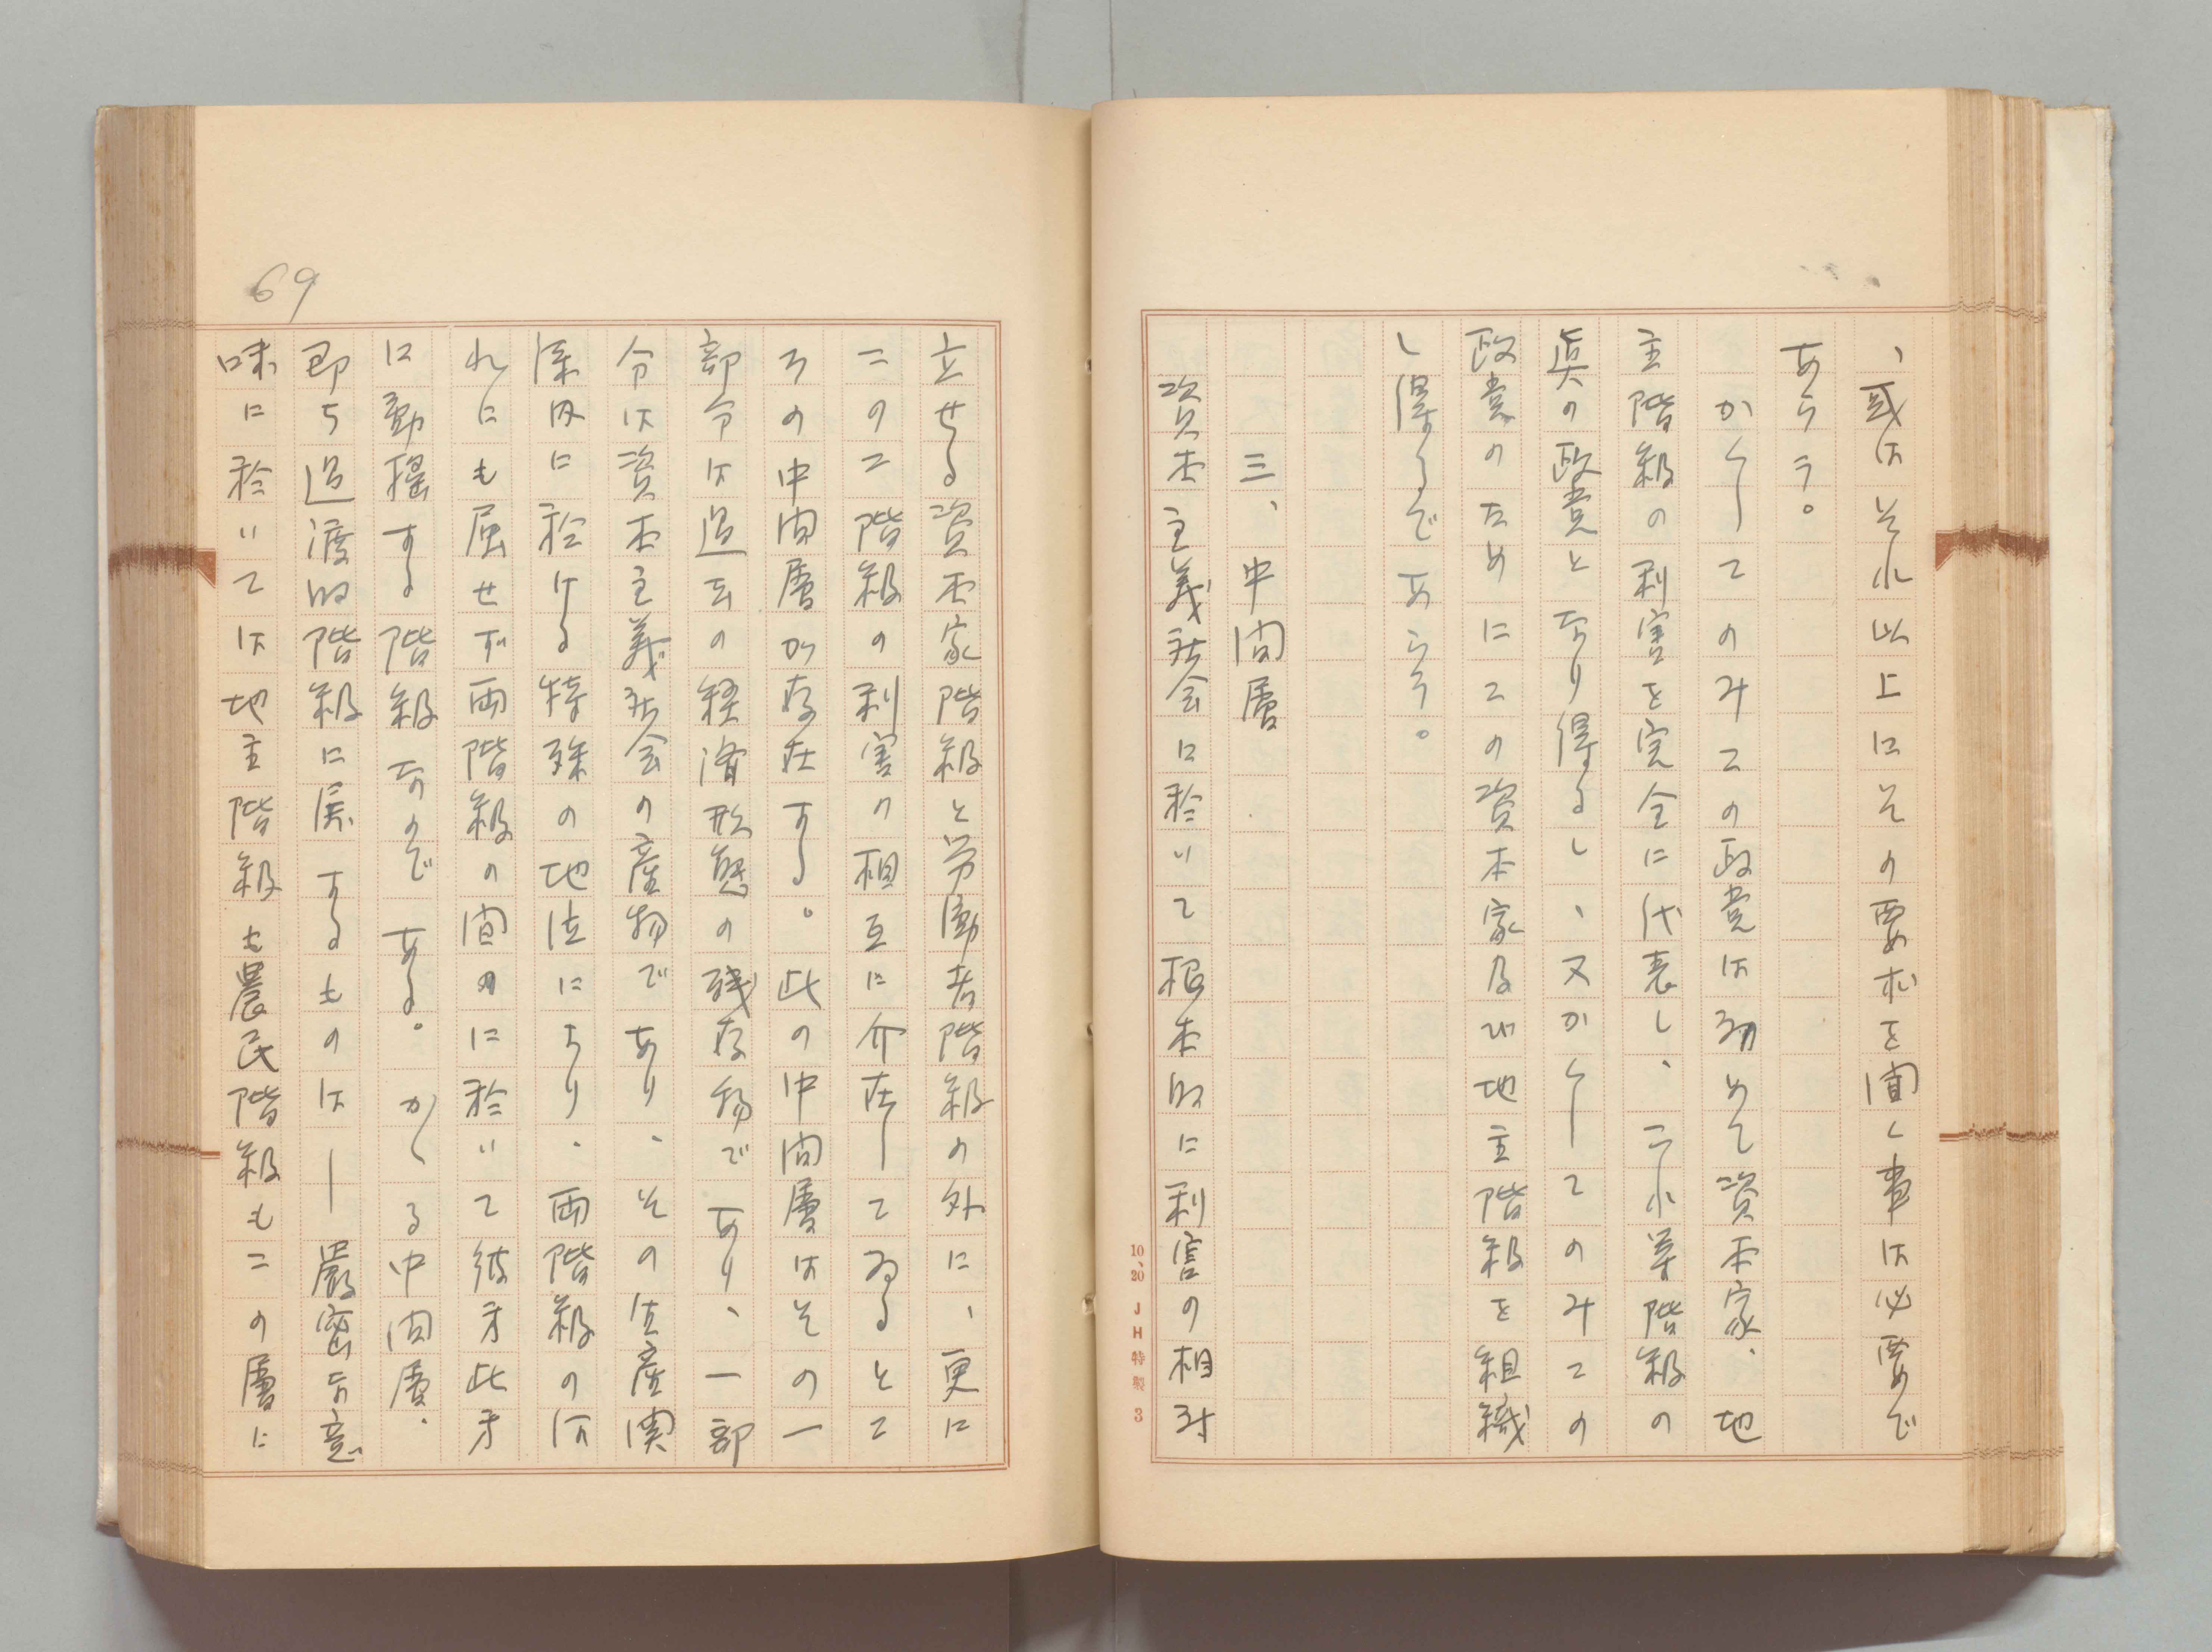 、或はそれ以上にその要求を聞く事は必要で
あらう。
かくしてのみこの政党は初めて資本家、地
主階級の利害を完全に代表し、これ等階級の
真の政党となり得るし、又かくしてのみこの
政党のためにこの資本家及び地主階級を組織
し得るであらう。
三、中間層
資本主義社会に於いて根本的に利害の相対
10、20 JH特製 3
69
立せる資本家階級と労働者階級の外に、更に
この二階級の利害の相互に介在してゐるとこ
ろの中間層が存在する。此の中間層はその一
部分は過去の経済形態の残存物であり、一部
分は資本主義社会の産物であり、その生産関
係内に於ける特殊の地位にたり、両階級の何
れにも属せず両階級の間に於いて彼方此方
に動揺する階級なのである。かゝる中間層、
即ち過渡的階級に属するものは―厳密な意
味に於いては地主階級も農民階級もこの層に